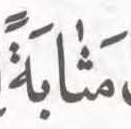 مَثٰابَةً